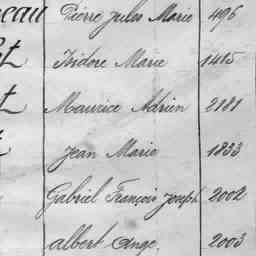 eau Pierre Jules Marie 496
et Isidore Marie 1415
t Maurice Adrien 2181
Jean Marie 1833
Gabriel François Joseph 2002
Albert Ange. 2003